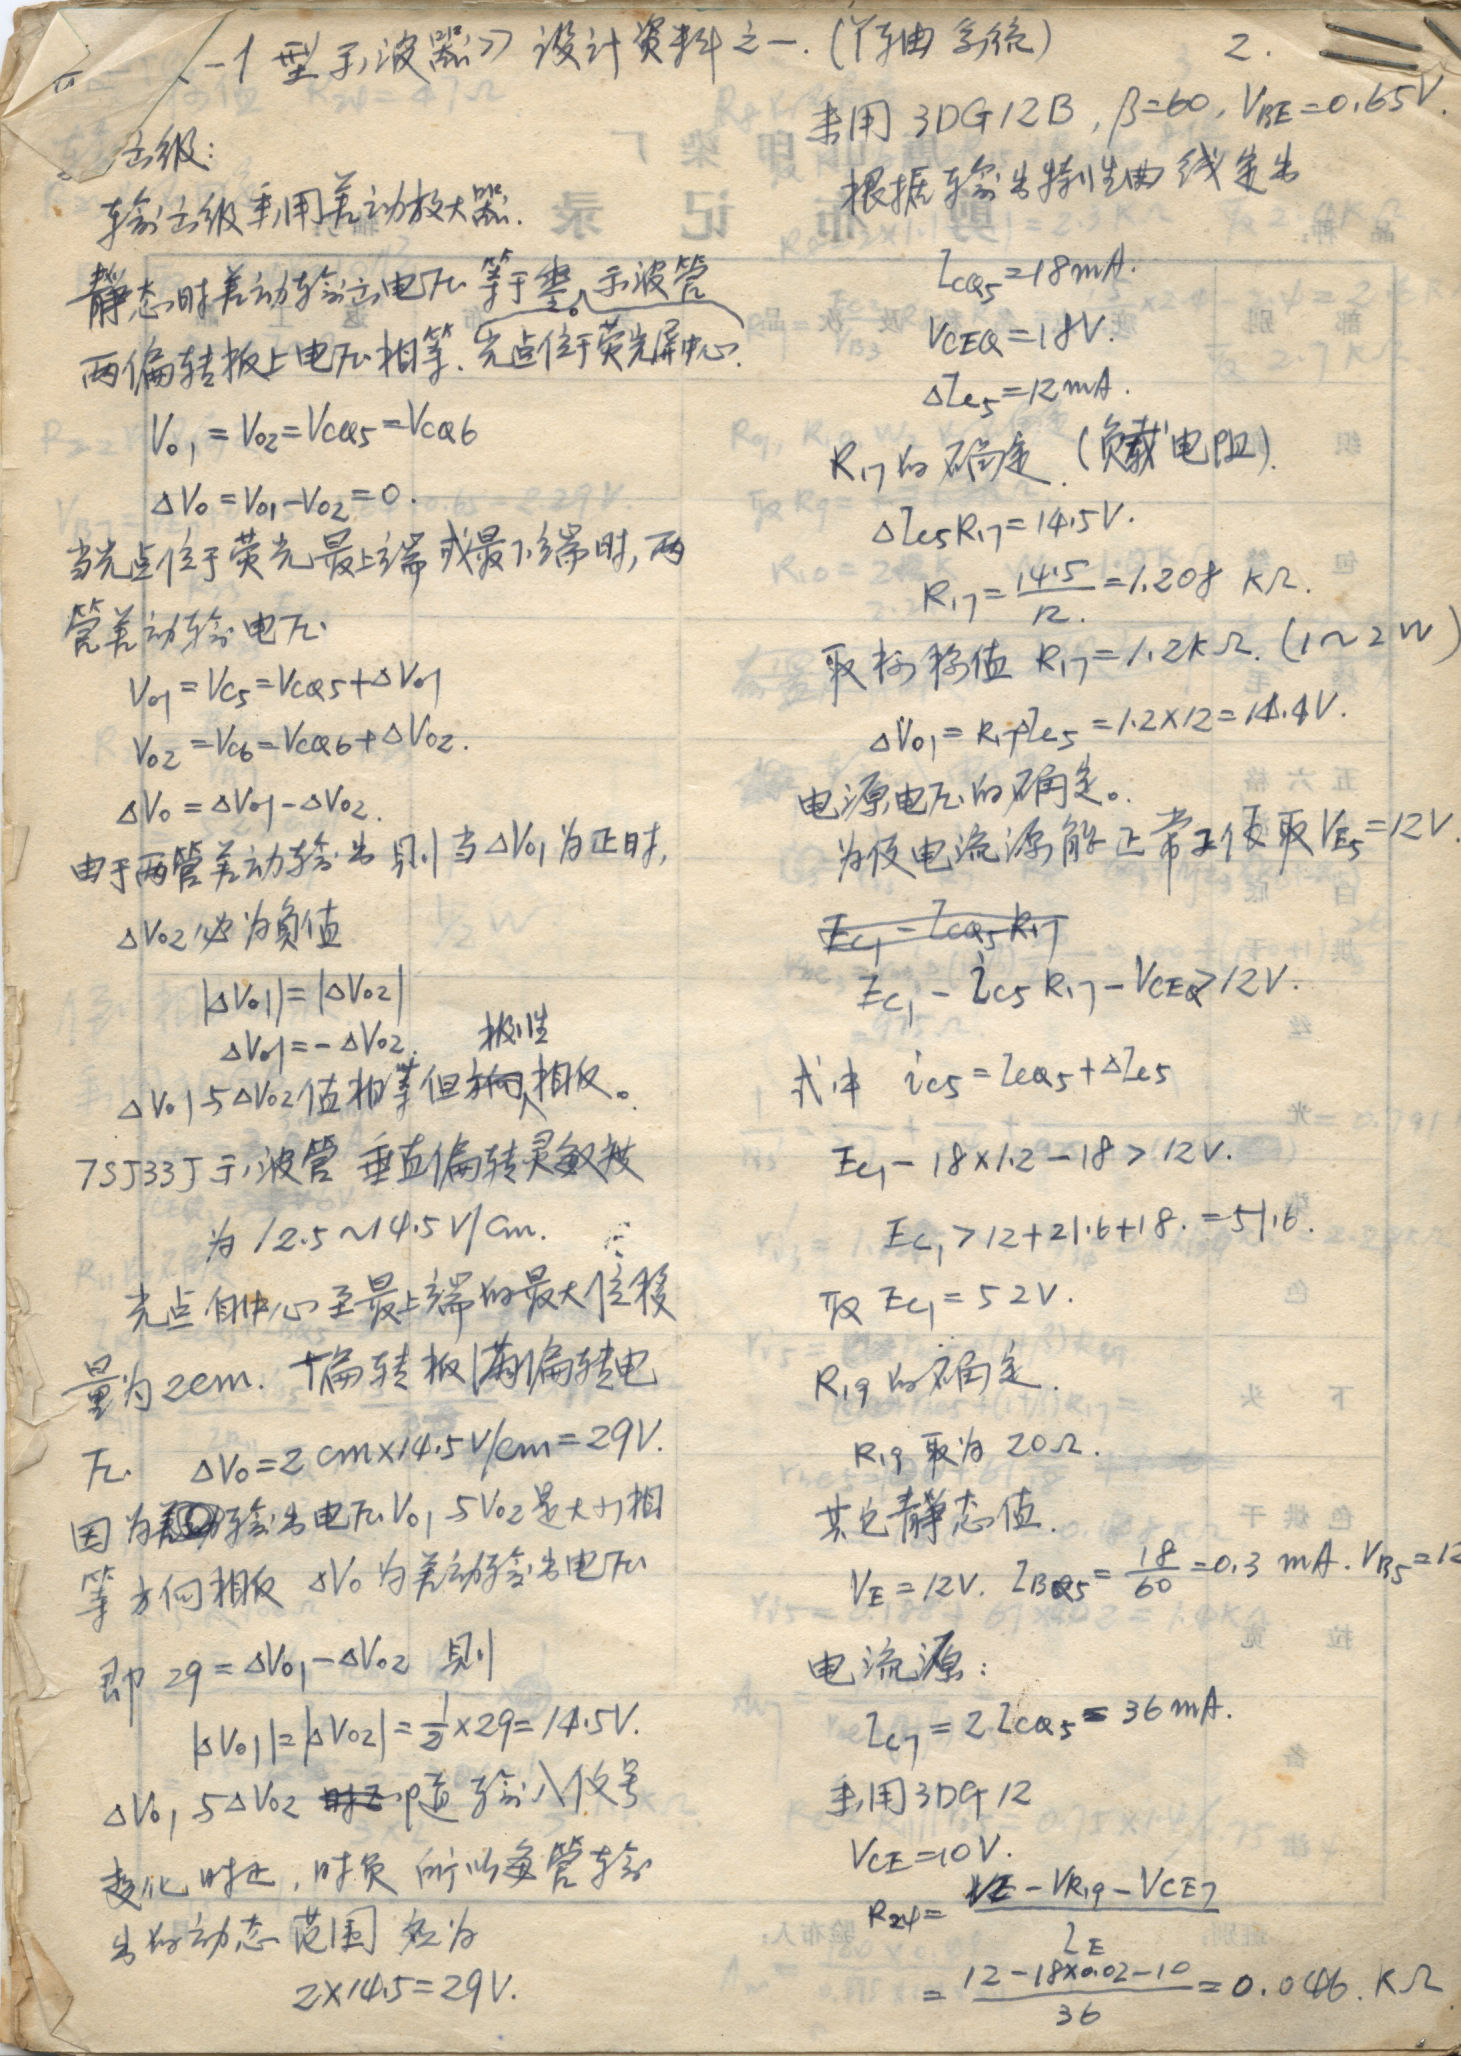 -1型示波器》设计资料之一.(Y轴系统)
2.
出级:
输出级采用差动放大器.
静态时差动输出电压等于零。示波管
两偏转板上电压相等.光点位于荧光屏中心.
V₀₁=V₀₂=VCQ5=VCQ6
ΔV₀=V₀₁-V₀₂=0.
当光点位于荧光最上端或最下端时,两
管差动输电压
V₀₁=VC5=VCQ5+ΔV₀₁
V₀₂=VC6=VCQ6+ΔV₀₂.
ΔV₀=ΔV₀₁-ΔV₀₂.
由于两管差动输出则当ΔV₀₁为正时,
ΔV₀₂必为负值
|ΔV₀₁|=|ΔV₀₂|
ΔV₀₁=-ΔV₀₂.
ΔV₀₁与ΔV₀₂值相等但极性相反。
7SJ33J示波管垂直偏转灵敏度
为12.5~14.5V/cm.
光点自中心至最上端的最大位移
量为2cm. 偏转板满偏转电
压 ΔV₀=2cm×14.5V/cm=29V.
因为输出电压V₀₁与V₀₂是大小相
等方向相反 ΔV₀为差动输出电压
即 29=ΔV₀₁-ΔV₀₂ 则
|ΔV₀₁|=|ΔV₀₂|=½×29=14.5V.
ΔV₀₁与ΔV₀₂ 随输入信号
变化时正,时负 所以每管输
出的动态范围应为
2×14.5=29V.
采用3DG12B,β=60,VBE=0.65V.
根据输出特性曲线定出
ICQ5=18mA.
VCEQ=18V.
ΔIc5=12mA.
R17的确定.(负载电阻).
ΔIc5R17=14.5V.
R17=14.5/12.=1.208 KΩ.
取标称值 R17=1.2KΩ.(1~2W)
ΔV₀₁=R17ΔIc5=1.2×12=14.4V.
电源电压的确定。
为使电流源能正常工作取VE5=12V.
EC1-ICQ5R17
EC1-iC5R17-VCEQ>12V.
式中 iC5=ICQ5+ΔIc5
EC1-18×1.2-18>12V.
EC1>12+21.6+18.=51.6.
取EC1=52V.
R19的确定.
R19取为20Ω.
其它静态值.
VE=12V. IBQ5=18/60=0.3mA. VB5=12
电流源:
IC7=2ICQ5=36mA.
采用3DG12
VCE=10V.
R24=VE-VR19-VCE7/IE
=12-18×0.02-10/36=0.046.KΩ